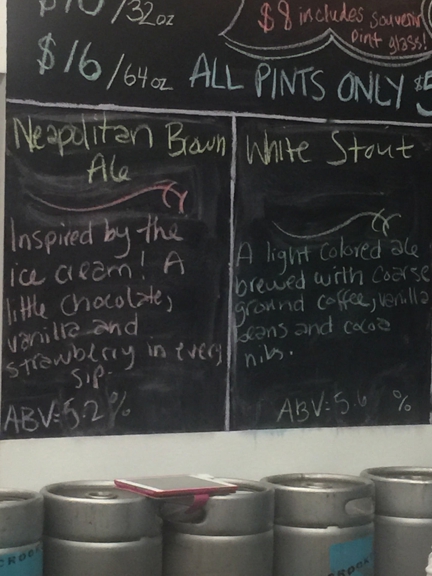 /32oz
$8 includes souvenir
pint glass!
$16/64oz ALL PINTS ONLY $5
Neapolitan Brown
Ale
Inspired by the
ice cream! A
little chocolate,
vanilla and
strawberry in every
sip.
ABV: 5.2%
White Stout
A light colored ale
brewed with coarse
ground coffee, vanilla
beans and cocoa
nibs.
ABV: 5.6 %
CROOK